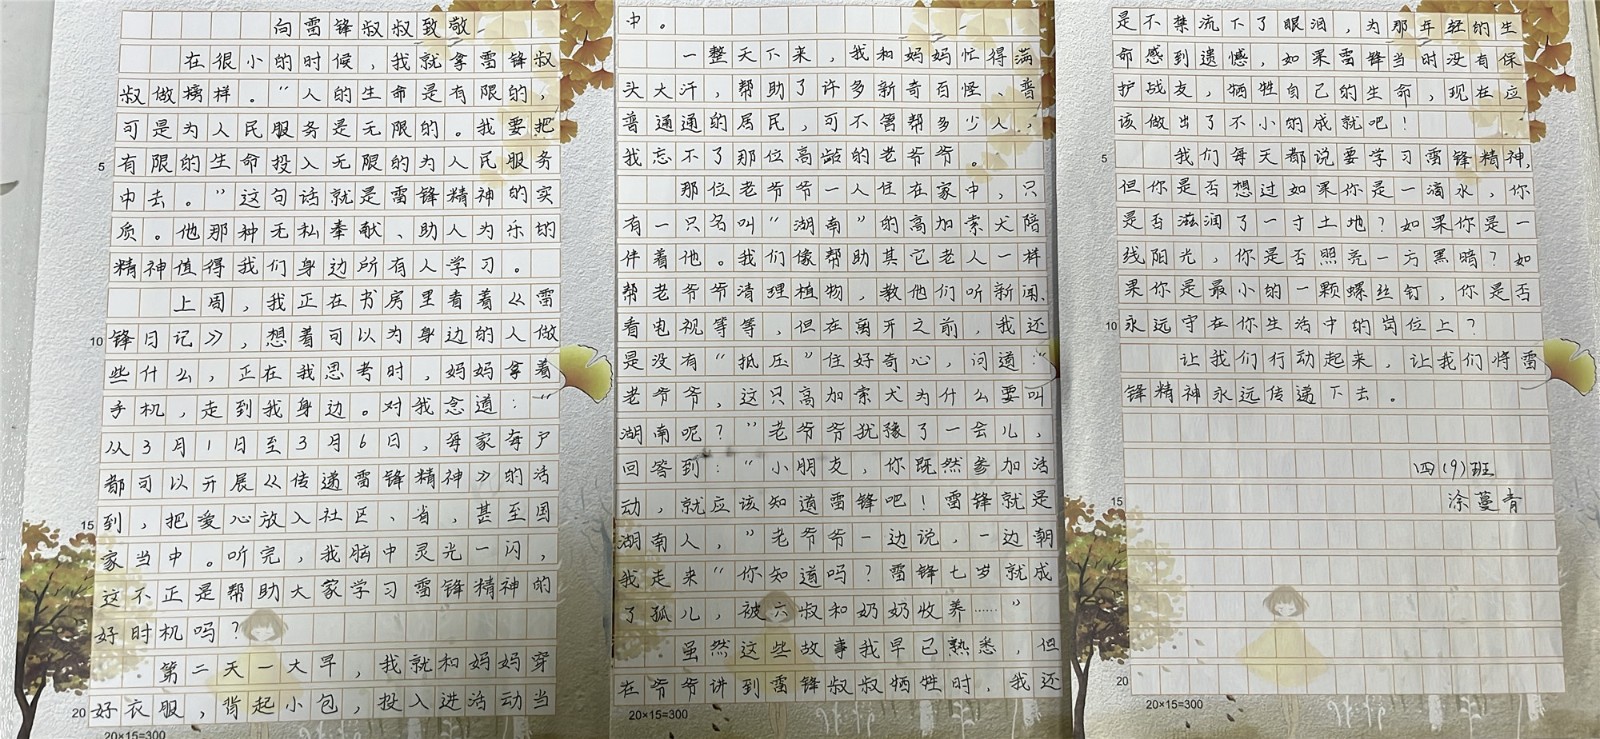 向雷锋叔叔致敬
在很小的时候，我就拿雷锋叔
叔做榜样。“人的生命是有限的，
可是为人民服务是无限的。我要把
5 有限的生命投入无限的为人民服务
中去。”这句话就是雷锋精神的实
质。他那种无私奉献、助人为乐的
精神值得我们身边所有人学习。
上周，我正在书房里看着《雷
10 锋日记》，想着可以为身边的人做
些什么，正在我思考时，妈妈拿着
手机，走到我身边。对我念道：“
从3月1日至3月6日，每家每户
都可以开展《传递雷锋精神》的活
15 到，把爱心放入社区、省，甚至国
家当中。听完，我脑中灵光一闪，
这不正是帮助大家学习雷锋精神的
好时机吗？
第二天一大早，我就和妈妈穿
20 好衣服，背起小包，投入进活动当
20×15=300
中。
一整天下来，我和妈妈忙得满
头大汗，帮助了许多新奇百怪、普
普通通的居民，可不管帮多少人，
我忘不了那位高龄的老爷爷。
那位老爷爷一人住在家中，只
有一只名叫“湖南”的高加索犬陪
伴着他。我们像帮助其它老人一样
帮老爷爷清理植物，教他们听新闻、
看电视等等，但在离开之前，我还
是没有“抵压”住好奇心，问道：“
老爷爷，这只高加索犬为什么要叫
湖南呢？”老爷爷犹豫了一会儿，
回答到：“小朋友，你既然参加活
动，就应该知道雷锋吧！雷锋就是
湖南人，”老爷爷一边说，一边朝
我走来“你知道吗？雷锋七岁就成
了孤儿，被六叔和奶奶收养……”
虽然这些故事我早已熟悉，但
在爷爷讲到雷锋叔叔牺牲时，我还
20×15=300
是不禁流下了眼泪，为那年轻的生
命感到遗憾，如果雷锋当时没有保
护战友，牺牲自己的生命，现在应
该做出了不小的成就吧！
5 我们每天都说要学习雷锋精神，
但你是否想过如果你是一滴水，你
是否滋润了一寸土地？如果你是一
线阳光，你是否照亮一方黑暗？如
果你是最小的一颗螺丝钉，你是否
10 永远守在你生活中的岗位上？
让我们行动起来，让我们将雷
锋精神永远传递下去。
四（9）班
15 涂蔓青
20
20×15=300